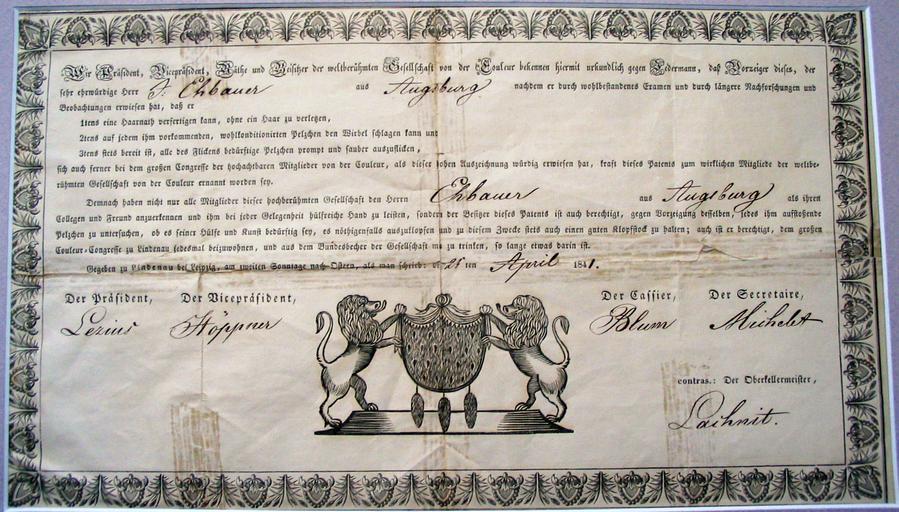 Wir Präsident, Vicepräsident, Räthe und Beisitzer der weltberühmten Gesellschaft von der Couleur bekennen hiermit urkundlich gegen Jedermann, daß Vorzeiger dieses, der
sehr ehrwürdige Herr Ehbauer aus Augsburg nachdem er durch wohlbestandenes Examen und durch längere Nachforschungen und
Beobachtungen erwiesen hat, daß er
1tens eine Haarnath verfertigen kann, ohne ein Haar zu verletzen,
2tens auf jedem ihm vorkommenden, wohlkonditionirten Pelzchen den Wirbel schlagen kann und
3tens stets bereit ist, alle des Flickens bedürftige Pelzchen prompt und sauber auszuflicken,
sich auch ferner bei dem großen Congresse der hochachtbaren Mitglieder von der Couleur, als dieser hohen Auszeichnung würdig erwiesen hat, kraft dieses Patents zum wirklichen Mitgliede der weltbe-
rühmten Gesellschaft von der Couleur ernannt worden sey.
Demnach haben nicht nur alle Mitglieder dieser hochberühmten Gesellschaft den Herrn Ehbauer aus Augsburg als ihren
Collegen und Freund anzuerkennen und ihm bei jeder Gelegenheit hülfreiche Hand zu leisten, sondern der Besitzer dieses Patents ist auch berechtigt, gegen Vorzeigung desselben, jedes ihm aufstoßende
Pelzchen zu untersuchen, ob es seiner Hülfe und Kunst bedürftig sey, es nöthigenfalls auszuklopfen und zu diesem Zwecke stets auch einen guten Klopfstock zu halten; auch ist er berechtigt, dem großen
Couleur-Congresse zu Lindenau jedesmal beizuwohnen, und aus dem Bundesbecher der Gesellschaft zu trinken, so lange etwas darin ist.
Gegeben zu Lindenau bei Leipzig, am zweiten Sonntage nach Ostern, als man schrieb: den 25 ten April 1841.
Der Präsident, Der Vicepräsident, Der Cassier, Der Secretaire,
Lezius Höppner Blum Michelet
contras.: Der Oberkellermeister,
Lachnit.